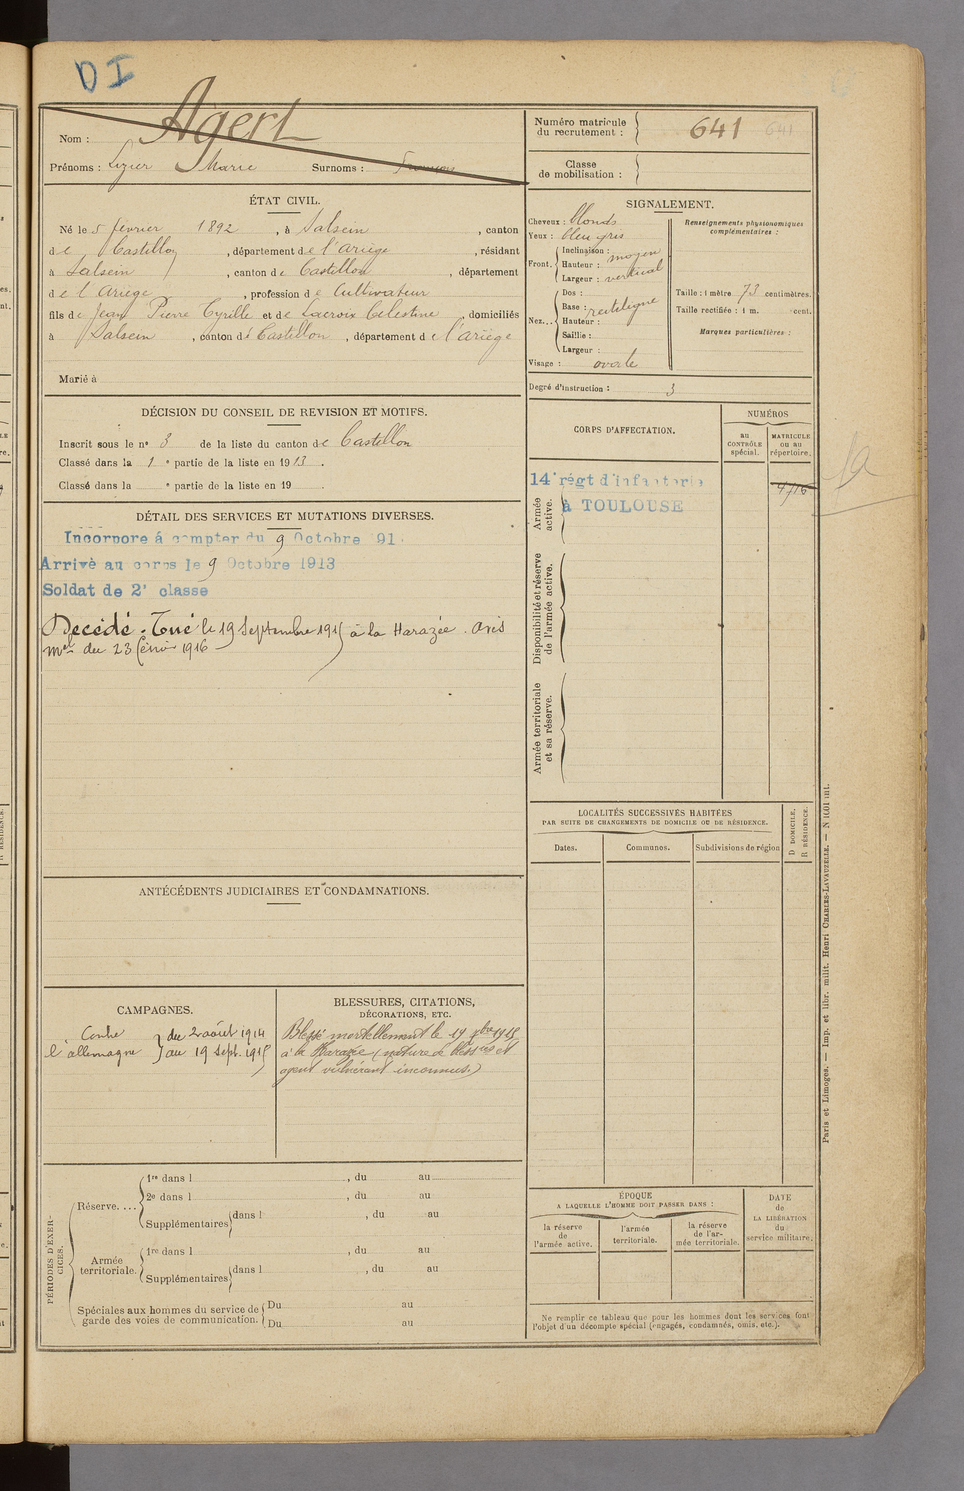 DI
Nom : Agert
Prénoms : Lizier Marie Surnoms : François
ÉTAT CIVIL.
Né le 5 février 1892, à Salsein, canton
de Castillon, département de l'Ariège, résidant
à Salsein, canton de Castillon, département
de l'Ariège, profession de Cultivateur
fils de Jean Pierre Cyrille et de Lacroix Célestine, domiciliés
à Salsein, canton de Castillon, département de l'ariège
Marié à
DÉCISION DU CONSEIL DE REVISION ET MOTIFS.
Inscrit sous le nº 8 de la liste du canton de Castillon
Classé dans la 1e partie de la liste en 1913.
Classé dans la e partie de la liste en 19
DÉTAIL DES SERVICES ET MUTATIONS DIVERSES.
Incorporé á compter du 9 Octobre 191
Arrivè au corps le 9 Octobre 1913
Soldat de 2e classe
Décédé. Tué le 19 Septembre 1915 à la Harazée. Avis
mel du 23 février 1916
ANTÉCÉDENTS JUDICIAIRES ET CONDAMNATIONS.
CAMPAGNES.
Contre } du 2 août 1914
l'allemagne } au 19 Sept. 1915
BLESSURES, CITATIONS,
DÉCORATIONS, ETC.
Blessé mortellement le 19 7bre 1915
à la Harazée (nature de bless
agent vulnérant inconnus.)
PÉRIODES D'EXER-
CICES.
Réserve....
1re dans l , du au
2e dans l , du au
Supplémentaires dans l , du au
Armée
territoriale.
1re dans l , du au
Supplémentaires dans l , du au
Spéciales aux hommes du service de
garde des voies de communication.
Du au
Du au
Numéro matricule
du recrutement : 641 641
Classe
de mobilisation :
SIGNALEMENT.
Cheveux : blonds
Yeux : bleu gris
Front.
Inclinaison : moyen
Hauteur :
Largeur : vertical
Nez...
Dos :
Base : rectiligne
Hauteur :
Saillie :
Largeur :
Visage : ovale
Renseignements physionomiques
complémentaires :
Taille : 1 mètre 73 centimètres.
Taille rectifiée : 1 m. cent.
Marques particulières :
Degré d'instruction : 3
CORPS D'AFFECTATION.
NUMÉROS
au
CONTRÔLE
spécial.
MATRICULE
ou au
répertoire.
Armée
active.
14e régt d'infanterie
à TOULOUSE
Disponibilité et réserve
de l'armée active.
Armée territoriale
et sa réserve.
LOCALITÉS SUCCESSIVES HABITÉES
PAR SUITE DE CHANGEMENTS DE DOMICILE OU DE RÉSIDENCE.
Dates.
Communes.
Subdivisions de région
D DOMICILE,
R RÉSIDENCE.
ÉPOQUE
A LAQUELLE L'HOMME DOIT PASSER DANS :
la réserve
de
l'armée active.
l'armée
territoriale.
la réserve
de l'ar-
mée territoriale.
DATE
de
LA LIBÉRATION
du
service militaire.
Ne remplir ce tableau que pour les hommes dont les services font
l'objet d'un décompte spécial (engagés, condamnés, omis, etc.).
Paris et Limoges. — Imp. et libr. milit. Henri CHARLES-LAVAUZELLE. — N